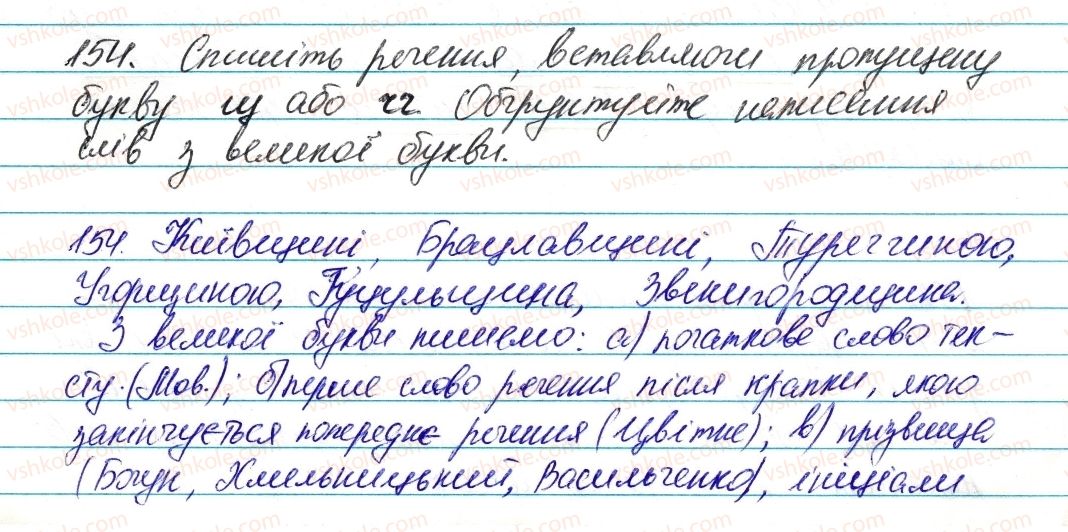 154. Спишіть речення, вставляючи пропущену
букву щ або чч. Обґрунтуйте написання
слів з великої букви.
154. Київщині, Брацлавщині, Туреччиною,
Угорщиною, Гуцульщина, Звенигородщина.
З великої букви пишемо: а) початкове слово тек-
сту. (Мов.); б) перше слово речення після крапки, якою
закінчується попереднє речення (Цвітне); в) прізвища
(Богун, Хмельницький, Васильченко), ініціали